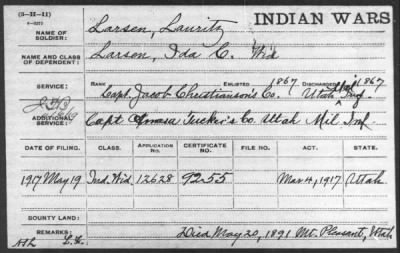 (3-H-11)
INDIAN WARS
NAME OF SOLDIER: Larsen, Lauritz
NAME AND CLASS OF DEPENDENT: Larsen, Ida C. Wid
SERVICE: RANK ENLISTED 1867 DISCHARGED 1867
Capt. Jacob Christianson's Co. Utah Mil Inf
ADDITIONAL SERVICE: Capt Amasa Tucker's Co Utah Mil Inf
DATE OF FILING. CLASS. APPLICATION NO. CERTIFICATE NO. FILE NO. ACT. STATE.
1917 May 19 Ind. Wid. 12628 9255 Mar 4, 1917 Utah
BOUNTY LAND:
REMARKS: Died May 20, 1891 Mt. Pleasant, Utah.